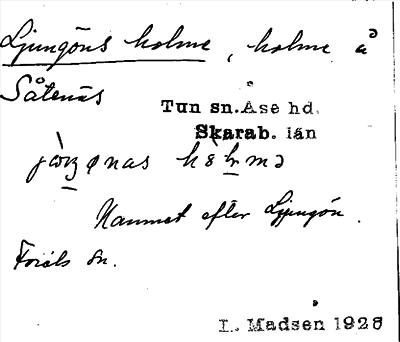 Ljungöns holme, holme å
Såtenäs
Tun sn. Åse hd.
Skarab. län
Namnet efter Ljungön.
Friels sn.
L. Madsen 1928